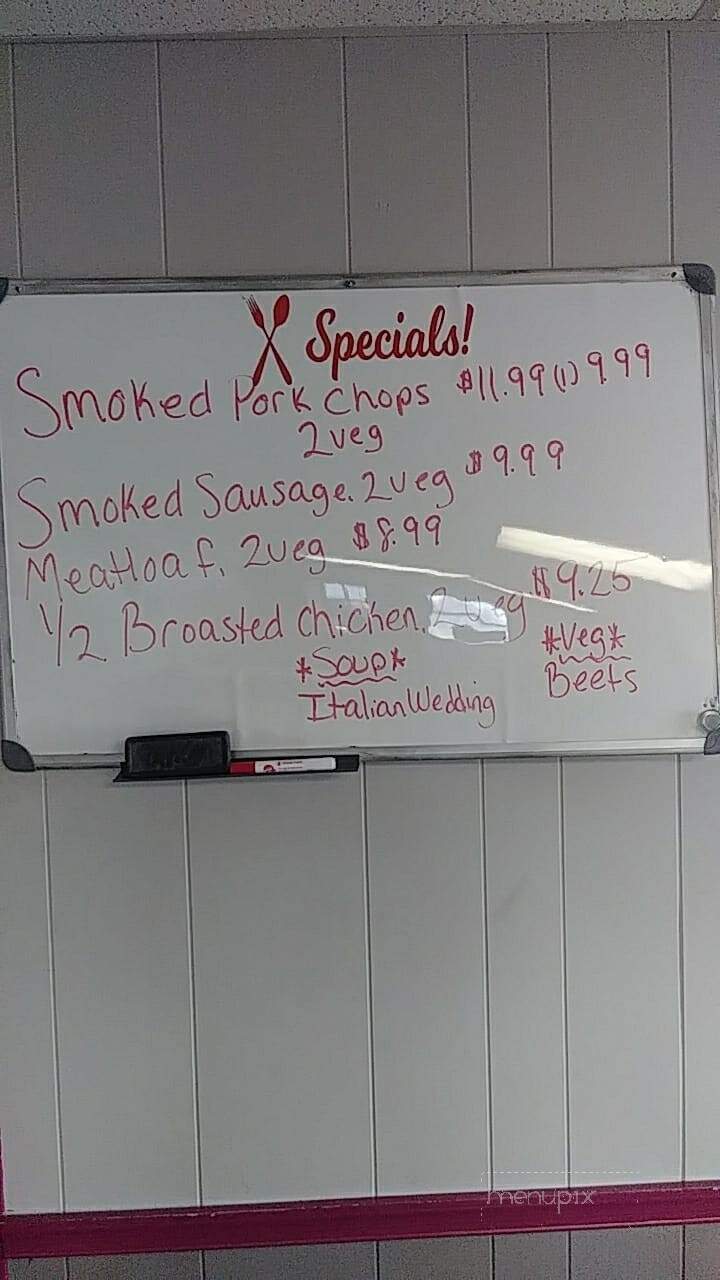 Specials!
Smoked Pork Chops $11.99 (1) 9.99
2 veg
Smoked Sausage. 2 veg $9.99
Meatloaf. 2 veg $8.99
1/2 Broasted Chicken. 2 veg $9.25
*Soup* *Veg*
Italian Wedding Beets
menupix